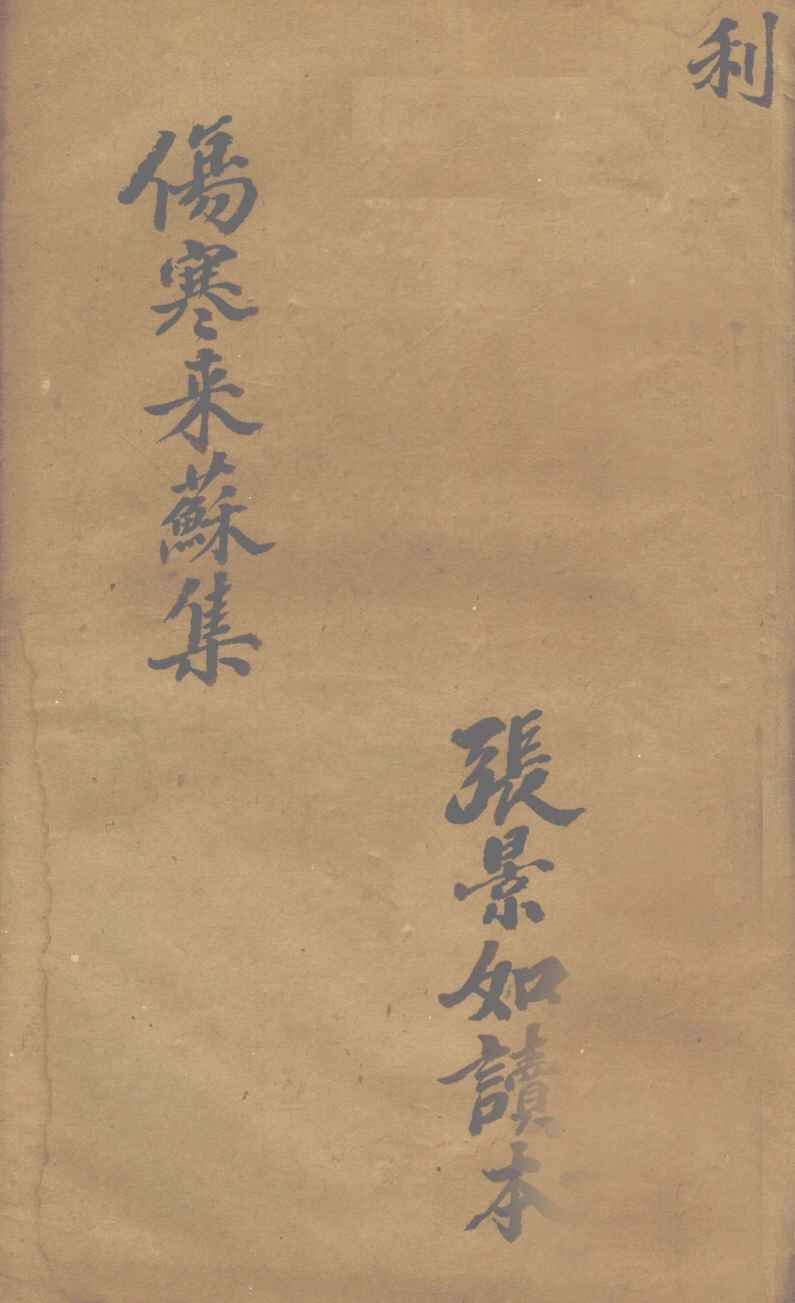 利
張景如讀本
傷寒来蘇集